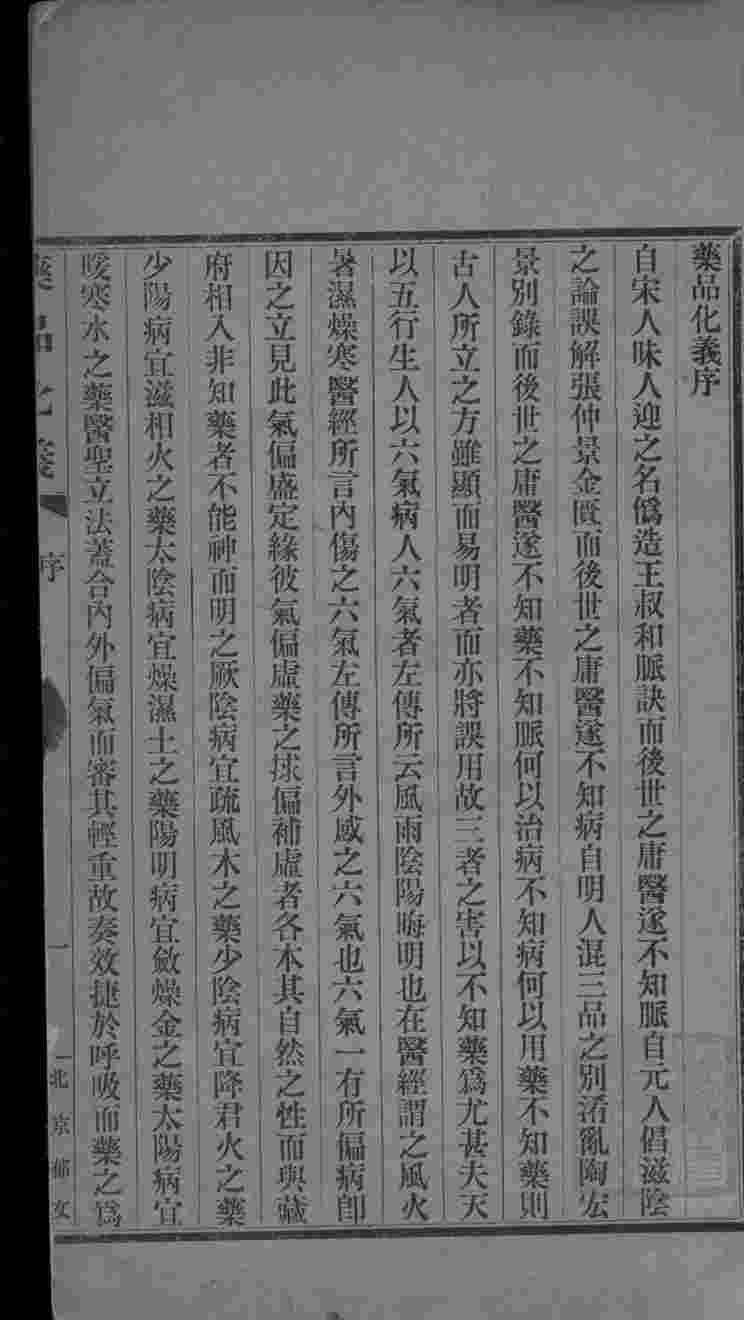 藥品化義序
自宋人昧人迎之名僞造王叔和脈訣而後世之庸醫遂不知脈自元人倡滋陰
之論誤解張仲景金匱而後世之庸醫遂不知病自明人混三品之別淆亂陶宏
景別錄而後世之庸醫遂不知藥不知脈何以治病不知病何以用藥不知藥則
古人所立之方雖顯而易明者而亦將誤用故三者之害以不知藥爲尤甚夫天
以五行生人以六氣病人六氣者左傳所云風雨陰陽晦明也在醫經謂之風火
暑濕燥寒醫經所言內傷之六氣左傳所言外感之六氣也六氣一有所偏病卽
因之立見此氣偏盛定緣彼氣偏虛藥之捄偏補虛者各本其自然之性而與藏
府相入非知藥者不能神而明之厥陰病宜疏風木之藥少陰病宜降君火之藥
少陽病宜滋相火之藥太陰病宜燥濕土之藥陽明病宜斂燥金之藥太陽病宜
暖寒水之藥醫聖立法蓋合內外偏氣而審其輕重故奏效捷於呼吸而藥之爲
藥品化義
序
一
北京郁文